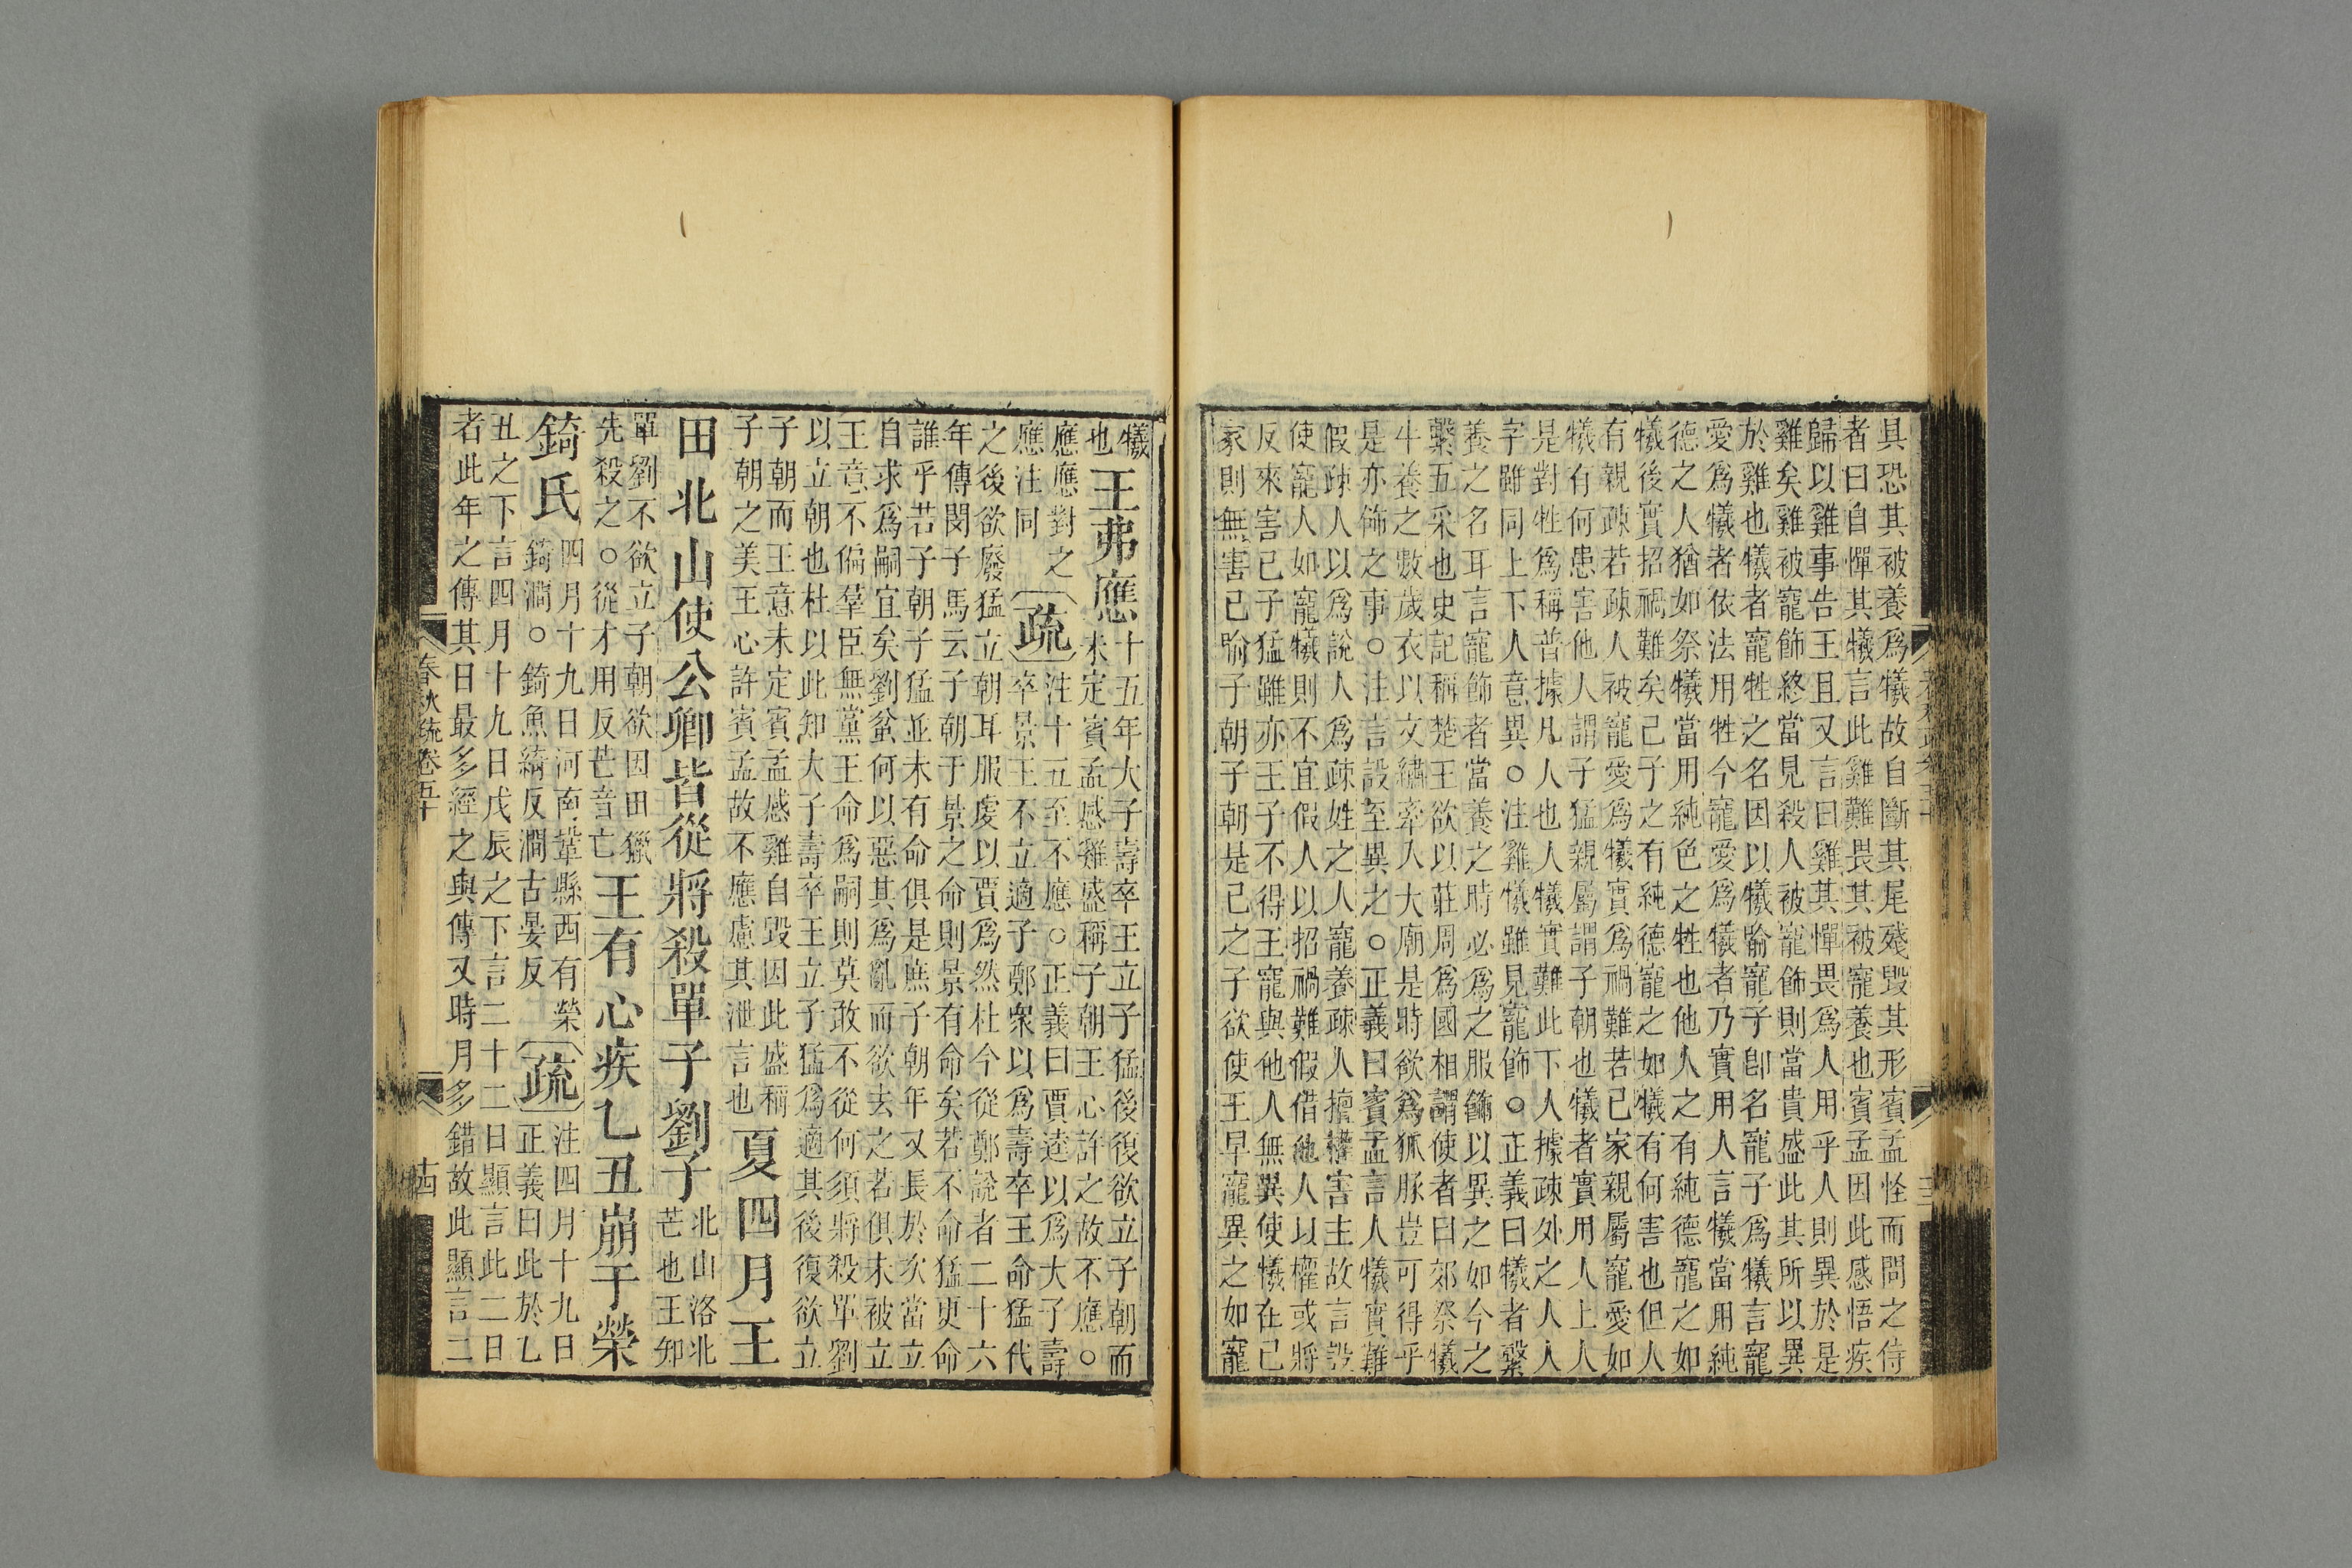 具恐其被養爲犧故自斷其尾殘毀其形賓孟怪而問之侍
者曰自憚其犧言此雞難畏其被寵養也賓孟因此感悟疾
歸以雞事告王且又言曰雞其憚畏爲人用乎人則異於是
雞矣雞被寵飾終當見殺人被寵飾則當貴盛此其所以異
於雞也犧者寵牲之名因以犧喻寵子卽名寵子爲犧言寵
愛爲犧者依法用牲今寵愛爲犧者乃實用人言犧當用純
德之人猶如祭犧當用純色之牲也他人之有純德寵之如
犧後實招禍難矣己子之有純德寵之如犧有何害也但人
有親疎若疎人被寵愛爲犧實爲禍難若己家親屬寵愛如
犧有何患害他人謂子猛親屬謂子朝也犧者實用人上人
是對牲爲稱普據凡人也人犧實難此下人據疎外之人人
字雖同上下人意異○注雞犧雖見寵飾○正義曰犧者繫
養之名耳言寵飾者當養之時必爲之服飾以異之如今之
繫五采也史記稱楚王欲以莊周爲國相謂使者曰郊祭犧
牛養之數歲衣以文繡牽入大廟是時欲爲狐豚豈可得乎
是亦飾之事○注言設至異之○正義曰賓孟言人犧實難
假疎人以爲說人爲疎姓之人寵養疎人擅權害主故言設
使寵人如寵犧則不宜假人以招禍難假借他人以權或將
反來害己子猛雖亦王子不得王寵與他人無異使犧在己
家則無害己喻子朝子朝是己之子欲使王早寵異之如寵
犧
也王弗應十五年大子壽卒王立子猛後復欲立子朝而
未定賓孟感雞盛稱子朝王心許之故不應○
應應對之
應注同疏注十五至不應○正義曰賈逵以爲大子壽
卒景王不立適子鄭衆以爲壽卒王命猛代
之後欲廢猛立朝耳服虔以賈爲然杜今從鄭說者二十六
年傳閔子馬云子朝于景之命則景有命矣若不命猛更命
誰乎若子朝子猛並未有命俱是庶子朝年又長於次當立
自求爲嗣宜矣劉蚠何以惡其爲亂而欲去之若俱未被立
王意不偏羣臣無黨王命爲嗣則莫敢不從何須將殺單劉
以立朝也杜以此知大子壽卒王立子猛爲適其後復欲立
子朝而王意未定賓孟感雞自毀因此盛稱
子朝之美王心許賓孟故不應慮其泄言也夏四月王
田北山使公卿皆從將殺單子劉子北山洛北
芒也王知
單劉不欲立子朝欲因田獵
先殺之○從才用反芒音亡王有心疾乙丑崩于榮
錡氏四月十九日河南鞏縣西有榮
錡澗○錡魚綺反澗古晏反疏注四月十九日
正義曰此於乙
丑之下言四月十九日戊辰之下言二十二日顯言此二日
者此年之傳其日最多經之與傳又時月多錯故此顯言二
春秋疏卷五十
十四